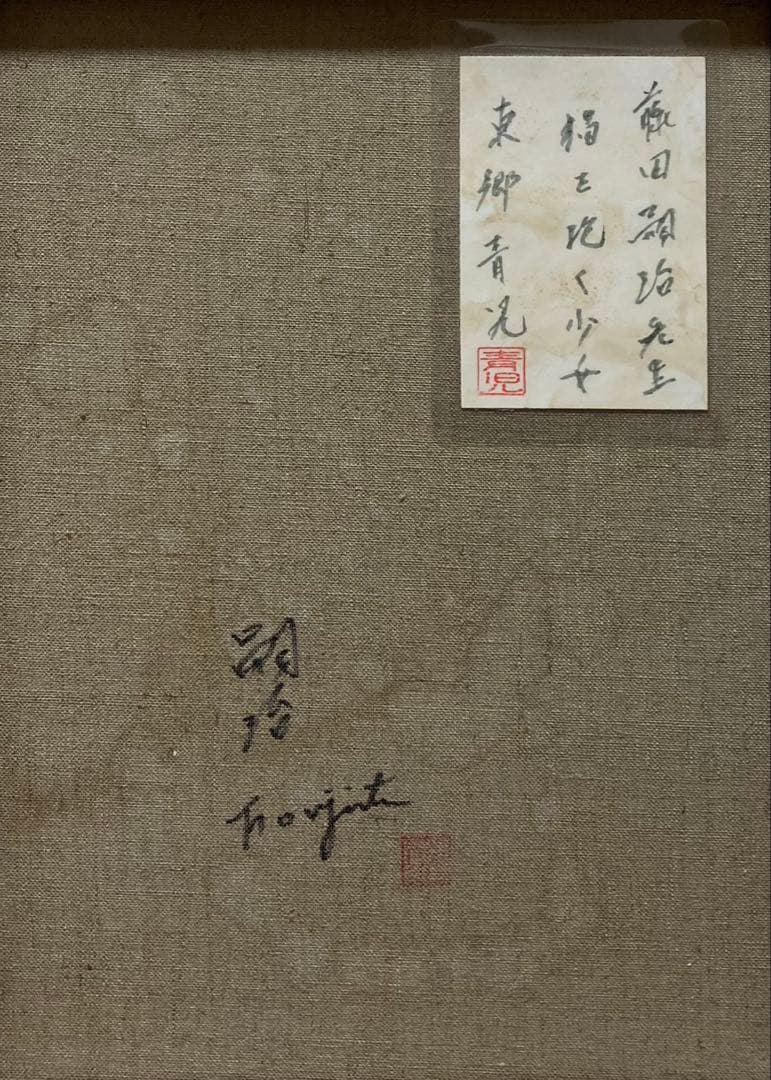 藤田嗣治先生
猫を抱く少女
東郷青児
青児
嗣治
Foujita